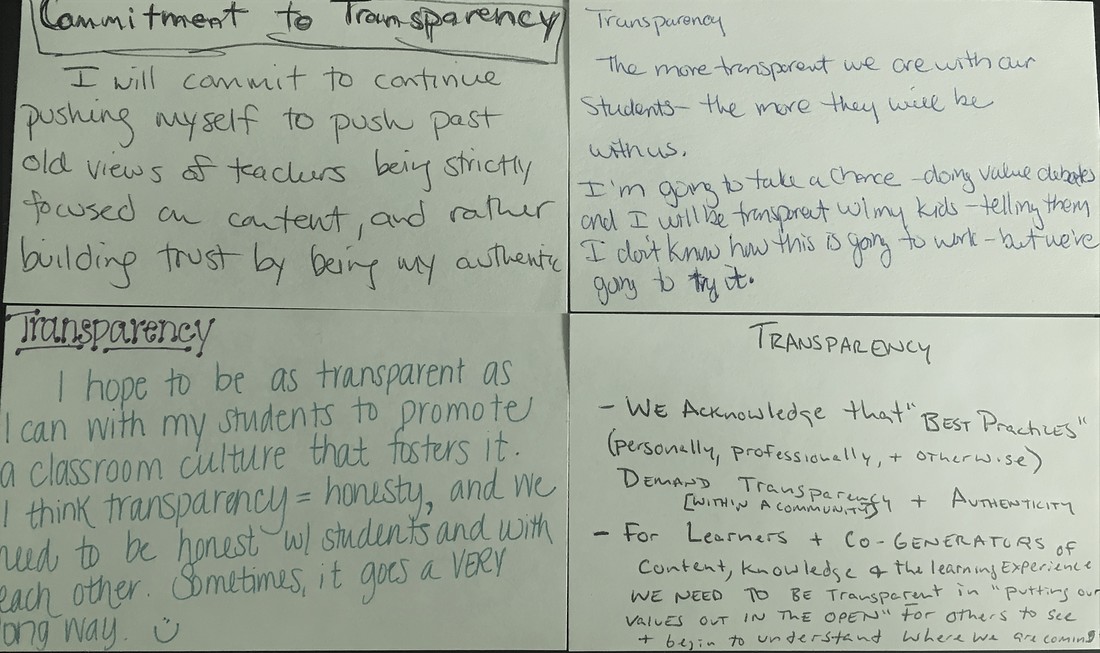 Commitment to Transparency
I will commit to continue
pushing myself to push past
old views of teachers being strictly
focused on content, and rather
building trust by being my authentic
Transparency
The more transparent we are with our
students – the more they will be
with us.
I'm going to take a chance – doing value debates
and I will be transparent w/ my kids – telling them
I don't know how this is going to work – but we're
going to try it.
Transparency
I hope to be as transparent as
I can with my students to promote
a classroom culture that fosters it.
I think transparency = honesty, and we
need to be honest w/ students and with
each other. Sometimes, it goes a VERY
long way. ☺
TRANSPARENCY
- WE Acknowledge that "BEST PRACTICES"
(personally, professionally, + otherwise)
DEMAND Transparency + AUTHENTICITY
[WITHIN A COMMUNITY]
- For Learners + CO-GENERATORS of
Content, knowledge & the learning Experience
WE NEED TO BE Transparent in "putting our
VALUES OUT IN THE OPEN" for others to see
+ begin to understand where we are coming